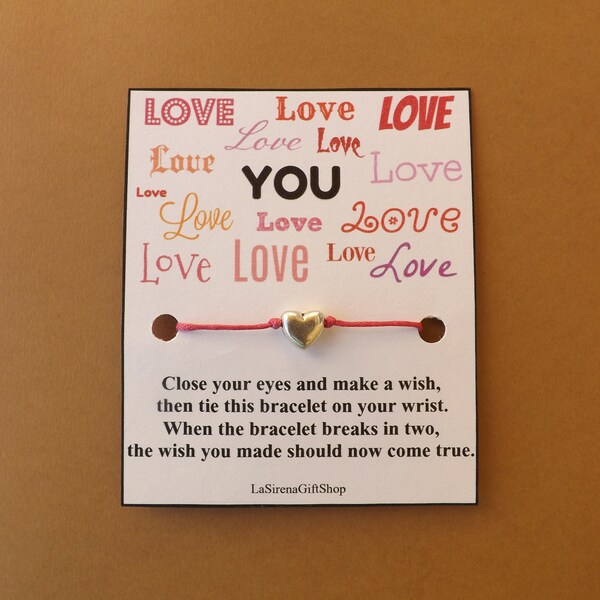 LOVE Love LOVE
Love Love
Love YOU Love
Love Love Love LOVE
Love Love Love Love
Close your eyes and make a wish,
then tie this bracelet on your wrist.
When the bracelet breaks in two,
the wish you made should now come true.
LaSirenaGiftShop